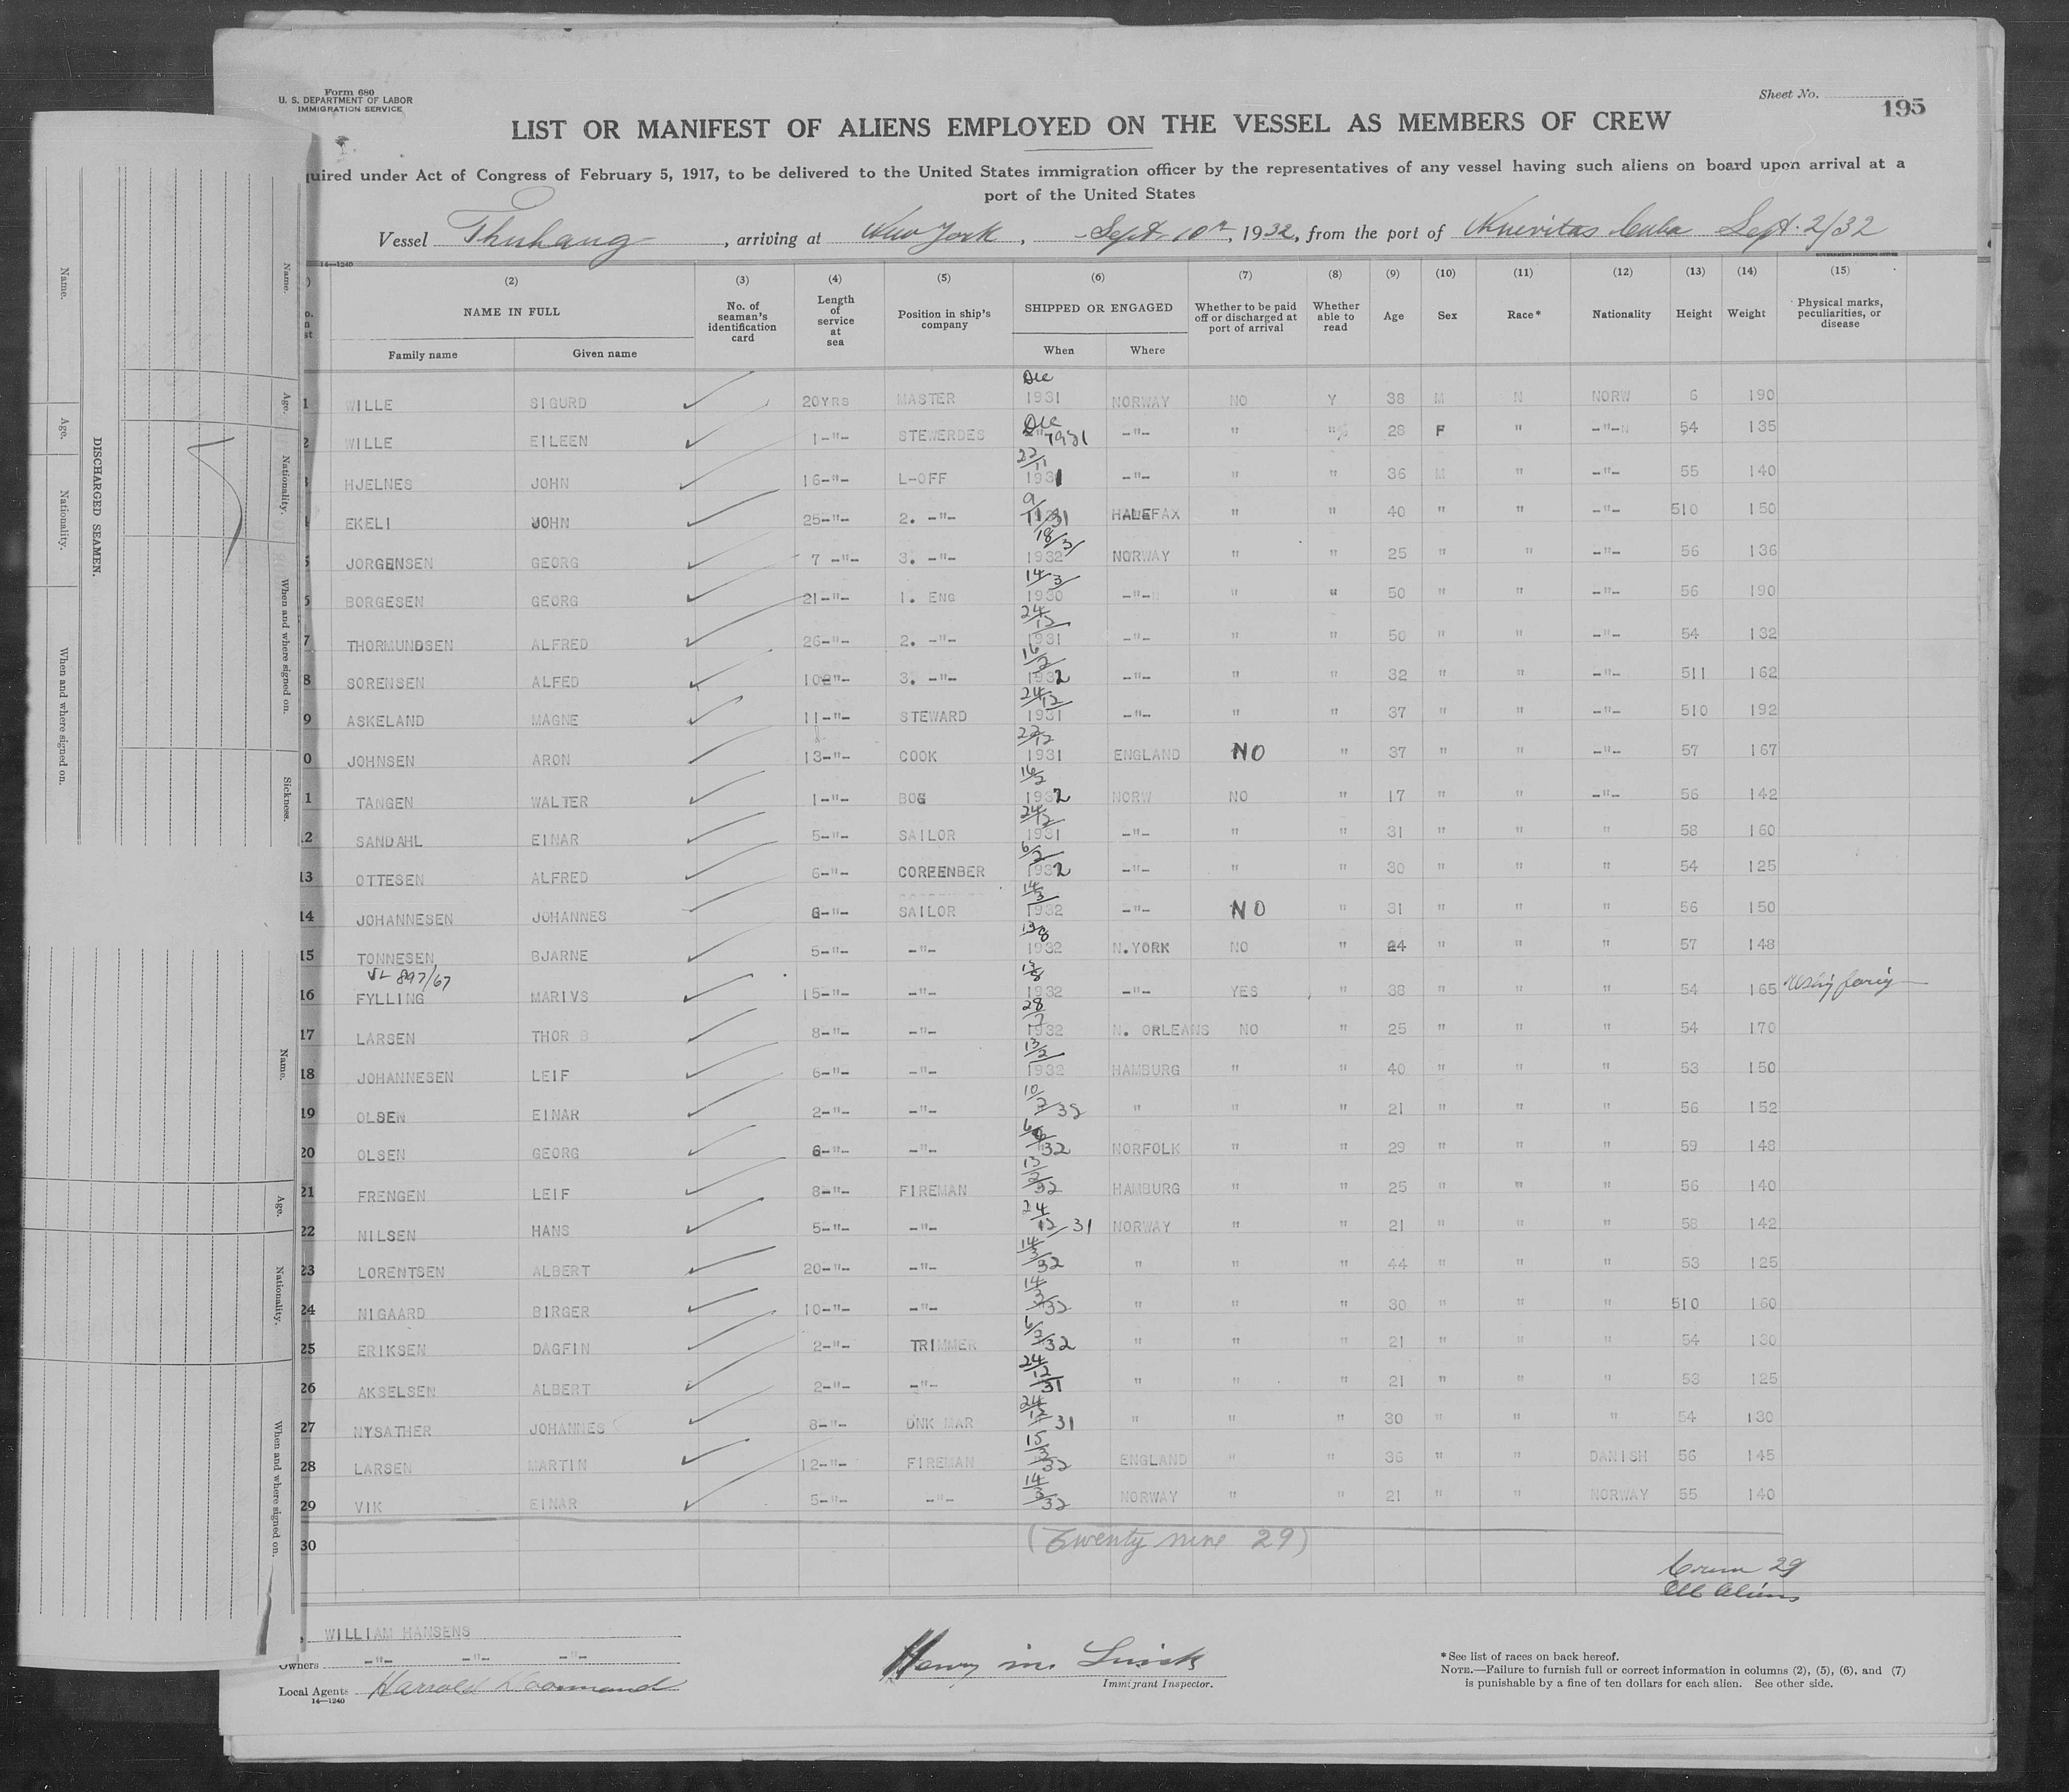 Form 680
U. S. DEPARTMENT OF LABOR
IMMIGRATION SERVICE
Sheet No.
195
LIST OR MANIFEST OF ALIENS EMPLOYED ON THE VESSEL AS MEMBERS OF CREW
uired under Act of Congress of February 5, 1917, to be delivered to the United States immigration officer by the representatives of any vessel having such aliens on board upon arrival at a
port of the United States
Vessel , arriving at New York , Sept. 10th, 1932, from the port of Cuba Sept. 2/32
14—1240
(2) (3) (4) (5) (6) (7) (8) (9) (10) (11) (12) (13) (14) (15)
NAME IN FULL
Family name Given name
No. of seaman's identification card
Length of service at sea
Position in ship's company
SHIPPED OR ENGAGED
When Where
Whether to be paid off or discharged at port of arrival
Whether able to read
Age Sex Race* Nationality Height Weight
Physical marks, peculiarities, or disease
1 WILLE SIGURD 20YRS MASTER Dec 1931 NORWAY NO Y 38 M N NORW 6 190
2 WILLE EILEEN 1-"- STEWERDES Dec 1931 -"- " " 28 F " -"- 54 135
HJELNES JOHN 16-"- L-OFF 22/11 1931 -"- " " 36 M " -"- 55 140
EKELI JOHN 25-"- 2. -"- HALEFAX " " 40 " " -"- 510 150
JORGENSEN GEORG 7 -"- 3. -"- 18/3/ 1932 NORWAY " " 25 " " -"- 56 136
BORGESEN GEORG 21-"- 1. ENG 14/3/ 1930 -"- " " 50 " " -"- 56 190
7 THORMUNDSEN ALFRED 26-"- 2. -"- 24/12/ 1931 -"- " " 50 " " -"- 54 132
8 SORENSEN ALFED 10-"- 3. -"- 16/2/ 1932 -"- " " 32 " " -"- 511 162
9 ASKELAND MAGNE 11-"- STEWARD 24/12 1931 -"- " " 37 " " -"- 510 192
0 JOHNSEN ARON 13-"- COOK 22/12 1931 ENGLAND NO " 37 " " -"- 57 167
1 TANGEN WALTER 1-"- BOG 16/2 1932 NORW NO " 17 " " -"- 56 142
2 SANDAHL EINAR 5-"- SAILOR 24/12 1931 -"- " " 31 " " " 58 160
13 OTTESEN ALFRED 6-"- COREENBER 6/2/ 1932 -"- " " 30 " " " 54 125
14 JOHANNESEN JOHANNES 6-"- SAILOR 14/3/ 1932 -"- NO " 31 " " " 56 150
15 TONNESEN BJARNE 5-"- -"- 13/8 1932 N.YORK NO " 24 " " " 57 148
897/67
16 FYLLING MARIVS 15-"- -"- 13/8 1932 -"- YES " 38 " " " 54 165
17 LARSEN THOR B 8-"- -"- 28/7 1932 N. ORLEANS NO " 25 " " " 54 170
18 JOHANNESEN LEIF 6-"- -"- 13/2/ 1932 HAMBURG " " 40 " " " 53 150
19 OLSEN EINAR 2-"- -"- 10/7/32 " " " 21 " " " 56 152
20 OLSEN GEORG 6-"- -"- 32 NORFOLK " " 29 " " " 59 148
21 FRENGEN LEIF 8-"- FIREMAN 13/2/32 HAMBURG " " 25 " " " 56 140
22 NILSEN HANS 5-"- -"- 24/12/31 NORWAY " " 21 " " " 58 142
23 LORENTSEN ALBERT 20-"- -"- 14/3/32 " " " 44 " " " 53 125
24 NIGAARD BIRGER 10-"- -"- 14/3/32 " " " 30 " " " 510 160
25 ERIKSEN DAGFIN 2-"- TRIMMER 6/2/32 " " " 21 " " " 54 130
26 AKSELSEN ALBERT 2-"- -"- 24/12/31 " " " 21 " " " 53 125
27 NYSATHER JOHANNES 8-"- DNK MAR 24/12/31 " " " 30 " " " 54 130
28 LARSEN MARTIN 12-"- FIREMAN 15/3/32 ENGLAND " " 36 " " DANISH 56 145
29 VIK EINAR 5-"- -"- 14/3/32 NORWAY " " 21 " " NORWAY 55 140
30 (Twenty nine 29)
29
All Aliens
WILLIAM HANSENS
Owners -"- -"- -"-
Local Agents
14—1240
Henry
Immigrant Inspector.
*See list of races on back hereof.
NOTE.—Failure to furnish full or correct information in columns (2), (5), (6), and (7)
is punishable by a fine of ten dollars for each alien. See other side.
DISCHARGED SEAMEN.
Name. Age. Nationality. When and where signed on.
Name. Age. Nationality. When and where signed on. Sickness.
Name. Age. Nationality. When and where signed on.